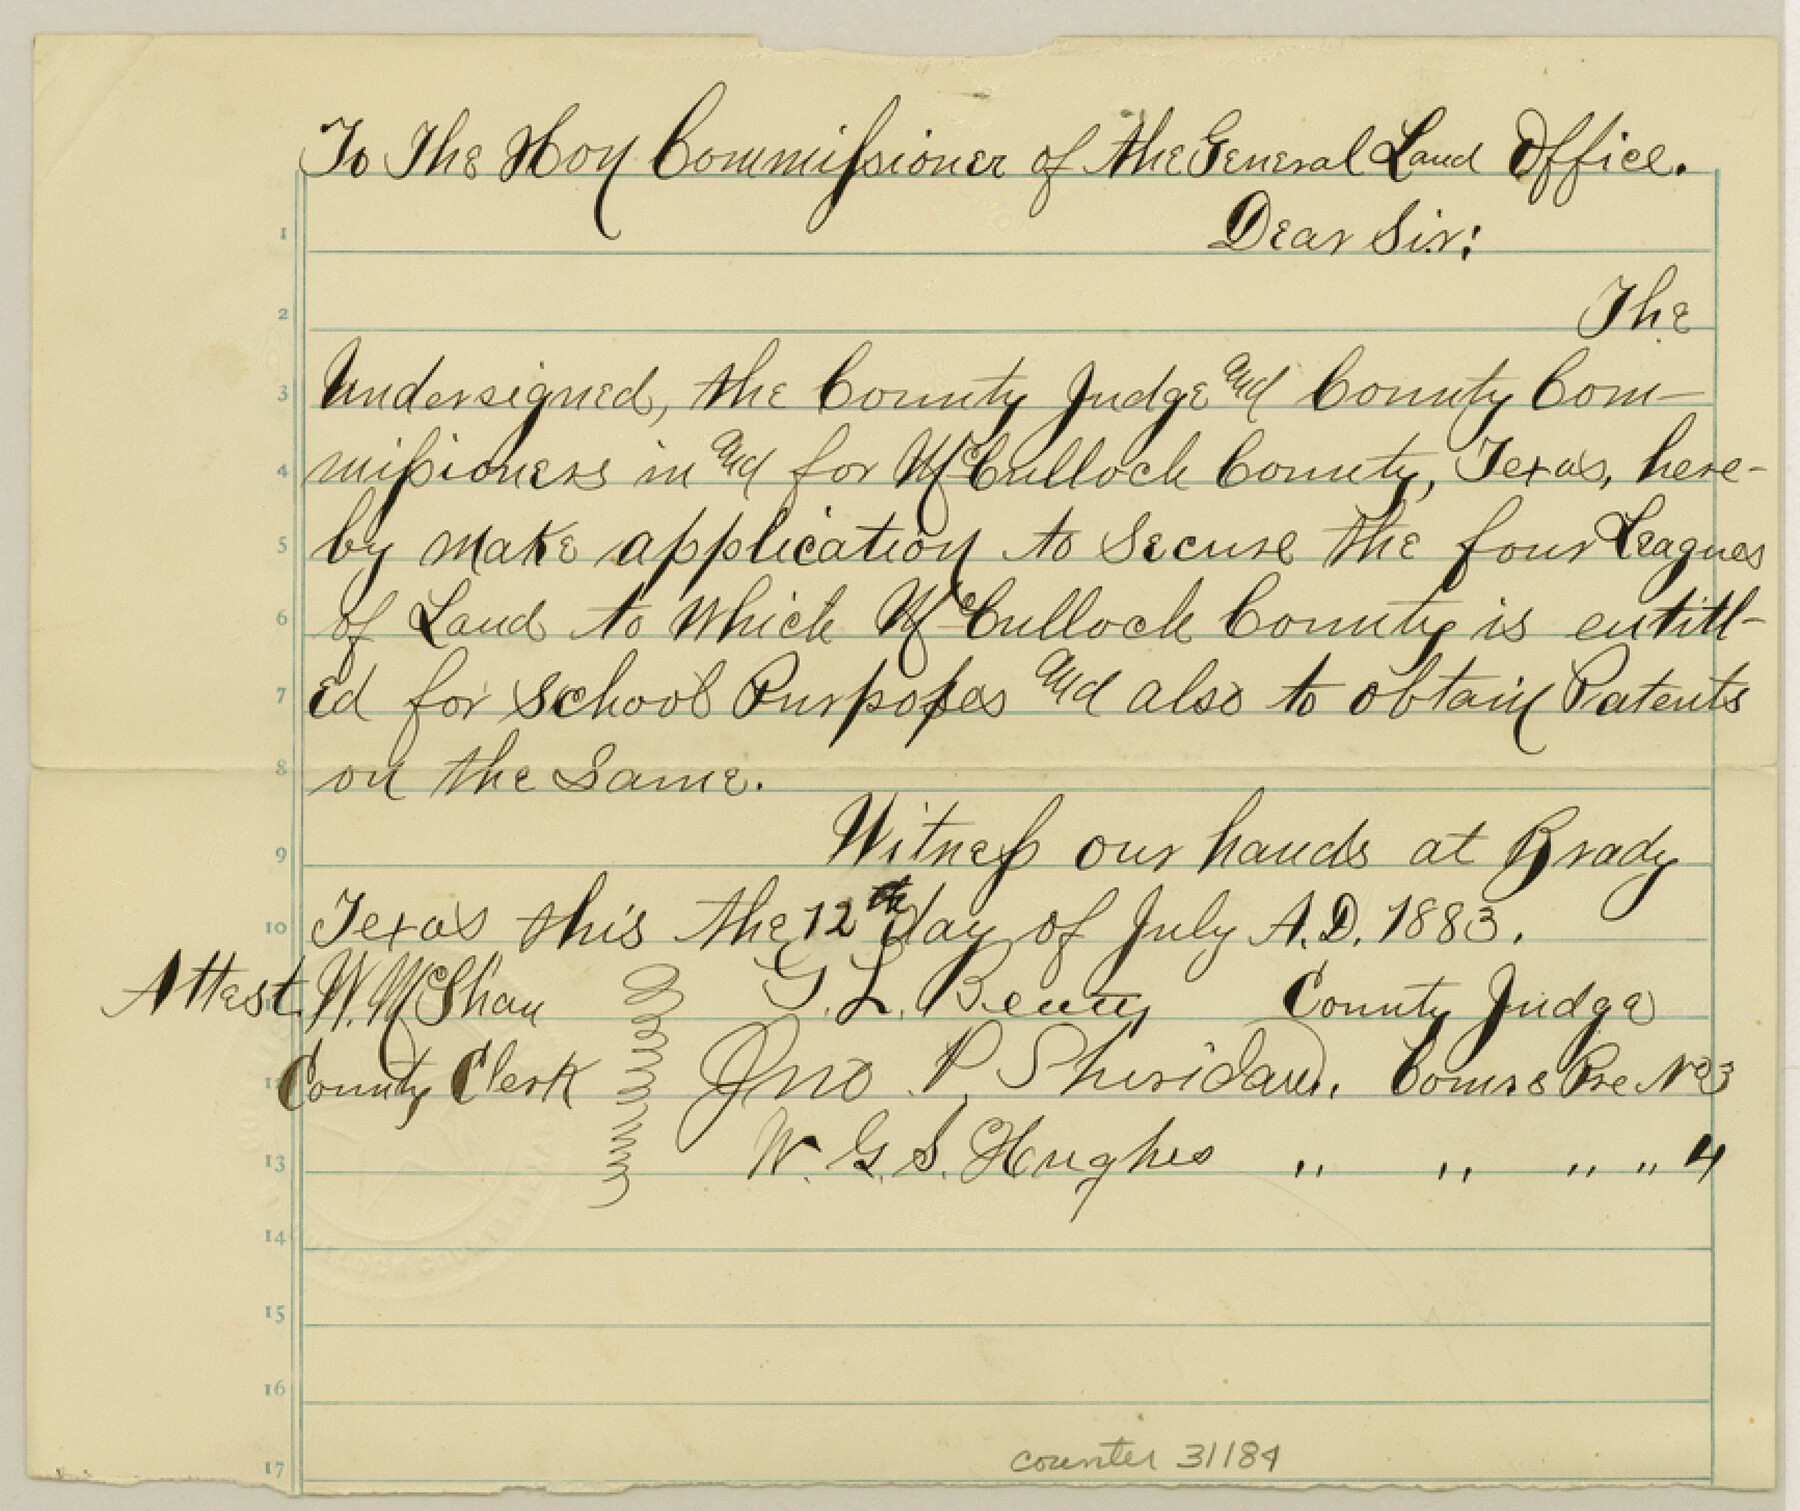 To The Hon Commissioner of the General Land Office.
1 Dear Sir:
2 The
3 Undersigned, the County Judge and County Com-
4 missioners in and for McCulloch County, Texas, here-
5 by make application to Secure the four Leagues
6 of Land to Which McCulloch County is entitl-
7 ed for School Purposes and also to obtain Patents
8 on the Same.
9 Witness our hands at Brady
10 Texas this the 12th day of July A.D. 1883.
Attest. W. McShan G. L. Beatty County Judge
12 County Clerk Jno P. Sheridan. Comrs Pre No 3
13 W. G. S. Hughes " " " " 4
14
15
16
counter 31184
17